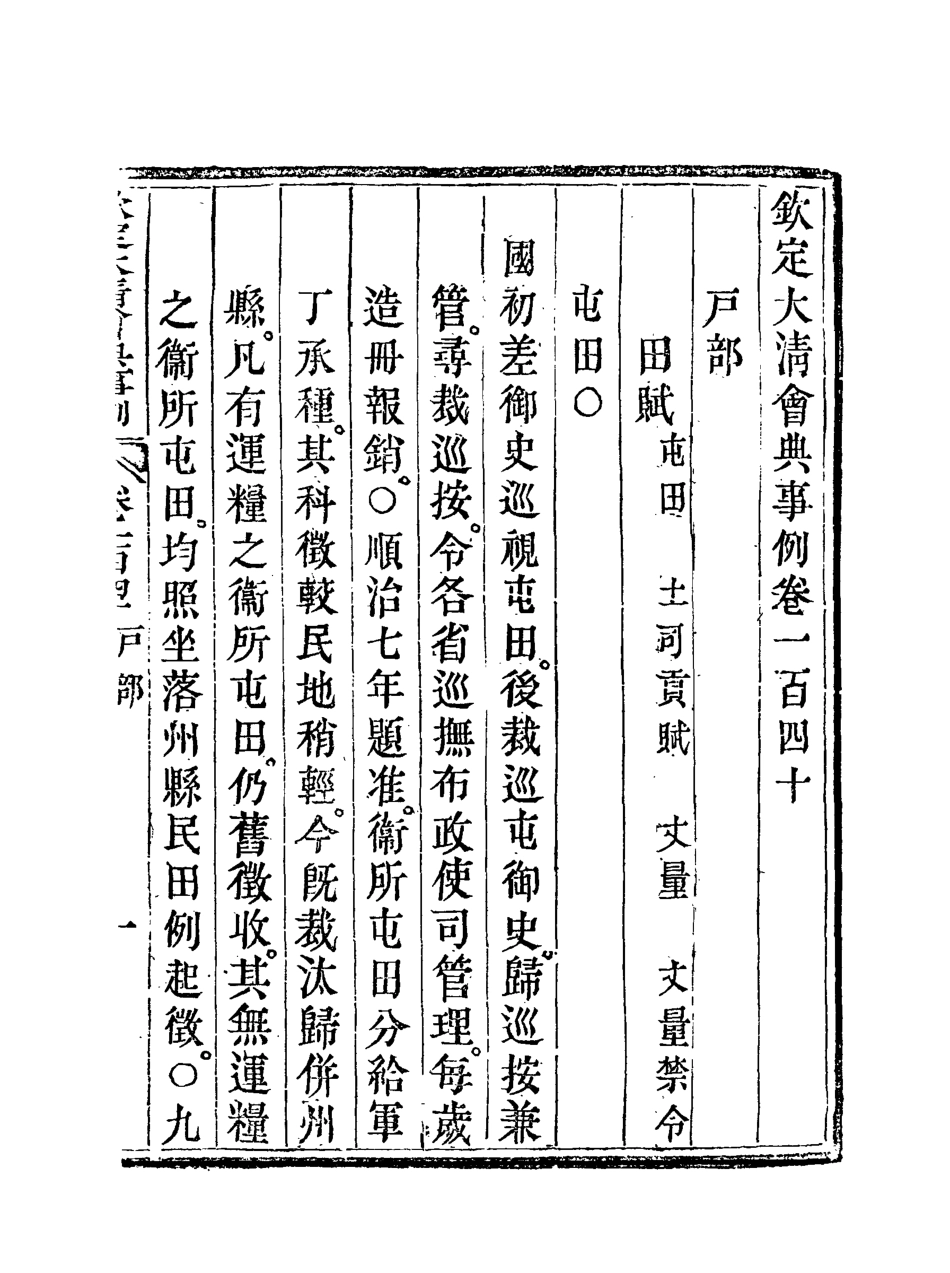 欽定大清會典事例卷一百四十
戸部
田賦 屯田 土司貢賦 丈量 丈量禁令
屯田○
國初差御史巡視屯田。後裁巡屯御史。歸巡按兼
管。尋裁巡按。令各省巡撫布政使司管理。每歲
造冊報銷。○順治七年題准。衞所屯田分給軍
丁承種。其科徵較民地稍輕。今既裁汰歸併州
縣。凡有運糧之衞所屯田。仍舊徵收。其無運糧
之衞所屯田。均照坐落州縣民田例起徵。○九
欽定大清會典事例 卷一百四十 戸部 一